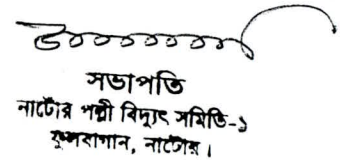 সভাপতি
নাটোর পল্লী বিদ্যুৎ সমিতি-১
ফুলবাগান, নাটোর।